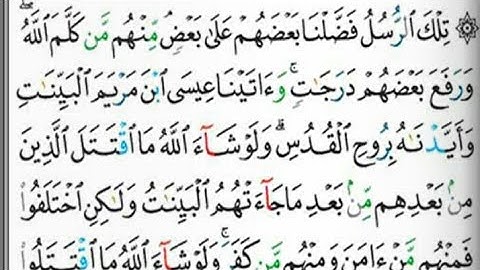 ۞ تِلْكَ ٱلرُّسُلُ فَضَّلْنَا بَعْضَهُمْ عَلَىٰ بَعْضٍۘ مِّنْهُم مَّن كَلَّمَ ٱللَّهُۖ
وَرَفَعَ بَعْضَهُمْ دَرَجَٰتٍۚ وَءَاتَيْنَا عِيسَى ٱبْنَ مَرْيَمَ ٱلْبَيِّنَٰتِ
وَأَيَّدْنَٰهُ بِرُوحِ ٱلْقُدُسِۗ وَلَوْ شَآءَ ٱللَّهُ مَا ٱقْتَتَلَ ٱلَّذِينَ
مِنۢ بَعْدِهِم مِّنۢ بَعْدِ مَا جَآءَتْهُمُ ٱلْبَيِّنَٰتُ وَلَٰكِنِ ٱخْتَلَفُوا۟
فَمِنْهُم مَّنْ ءَامَنَ وَمِنْهُم مَّن كَفَرَۚ وَلَوْ شَآءَ ٱللَّهُ مَا ٱقْتَتَلُوا۟